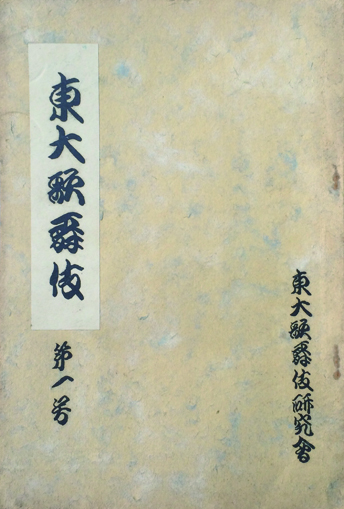 東大歌舞伎
第一号
東大歌舞伎研究會